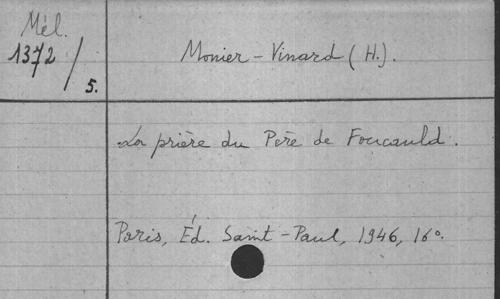 Mél.
1372/5.
Monier-Vinard (H.).
La prière du Père de Foucauld.
Paris, Éd. Saint-Paul, 1946, 16°.